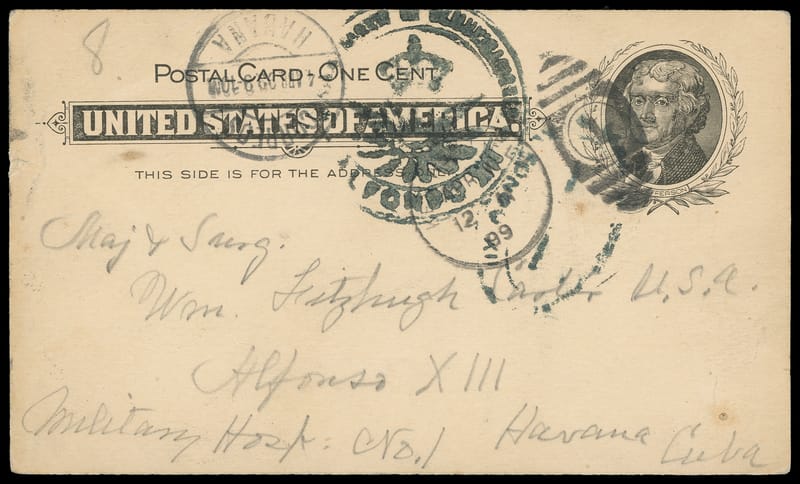 8
HAVANA
POSTAL CARD - ONE CENT.
UNITED STATES OF AMERICA.
THIS SIDE IS FOR THE ADDRESS ONLY.
JEFFERSON
ALFONSO XIII
12
99
Maj & Surg.
Wm. Fitzhugh Carter U.S.A.
Alfonso XIII
Military Hosp. No. 1 Havana Cuba